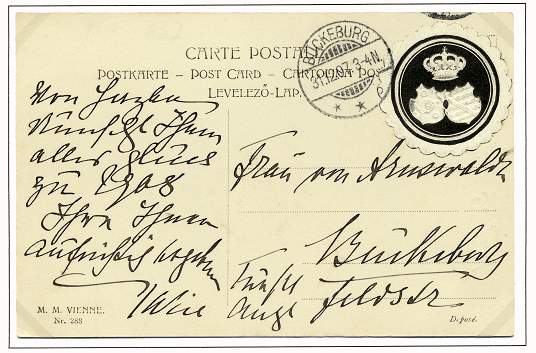 CARTE POSTALE
POSTKARTE – POST CARD – CARTOLINA POS
LEVELEZŐ-LAP.
BÜCKEBURG
31.12.07. 3-4N.
Von Herzen
wünscht Ihnen
alles Glück
zu 1908
Ihre Ihnen
aufrichtig ergebene
Frau von Arnswaldt
Bückeburg
M. M. VIENNE.
Nr. 288
Déposé.